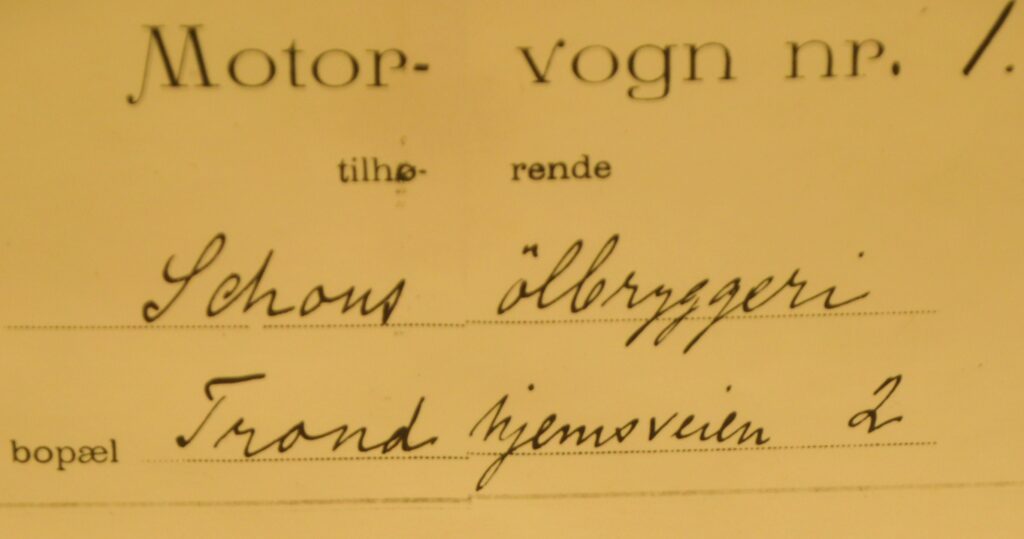 Motor- vogn nr. 1.
tilhø- rende
Schous ölbryggeri
bopæl Trondhjemsveien 2